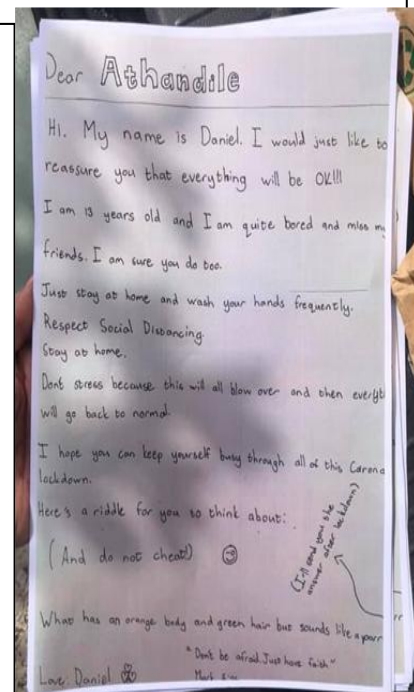 Dear Athandile
Hi. My name is Daniel. I would just like to
reassure you that everything will be OK!!!
I am 13 years old and I am quite bored and miss my
friends. I am sure you do too.
Just stay at home and wash your hands frequently.
Respect Social Distancing.
Stay at home.
Dont stress because this will all blow over and then everyt
will go back to normal.
I hope you can keep yourself busy through all of this Corona
lockdown.
Here's a riddle for you to think about:
(And do not cheat!)
(I'll send you the
answer after lockdown)
What has an orange body and green hair but sounds like a parr
"Dont be afraid. Just have faith"
Mark
Love Daniel